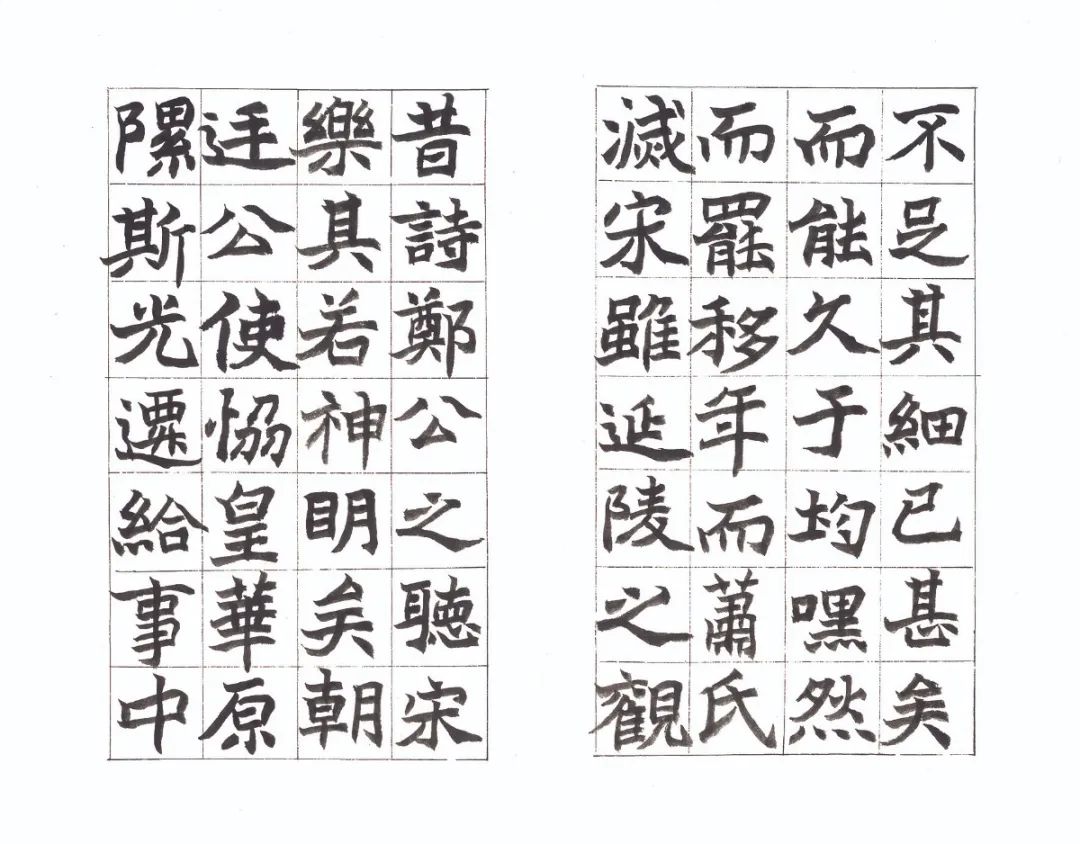 不足其細已甚矣
而能久于均嘿然
而罷移年而蕭氏
滅宋雖延陵之觀
昔詩鄭公之聽宋
樂其若神明矣朝
廷公使恊皇華原
隰斯光遷給事中